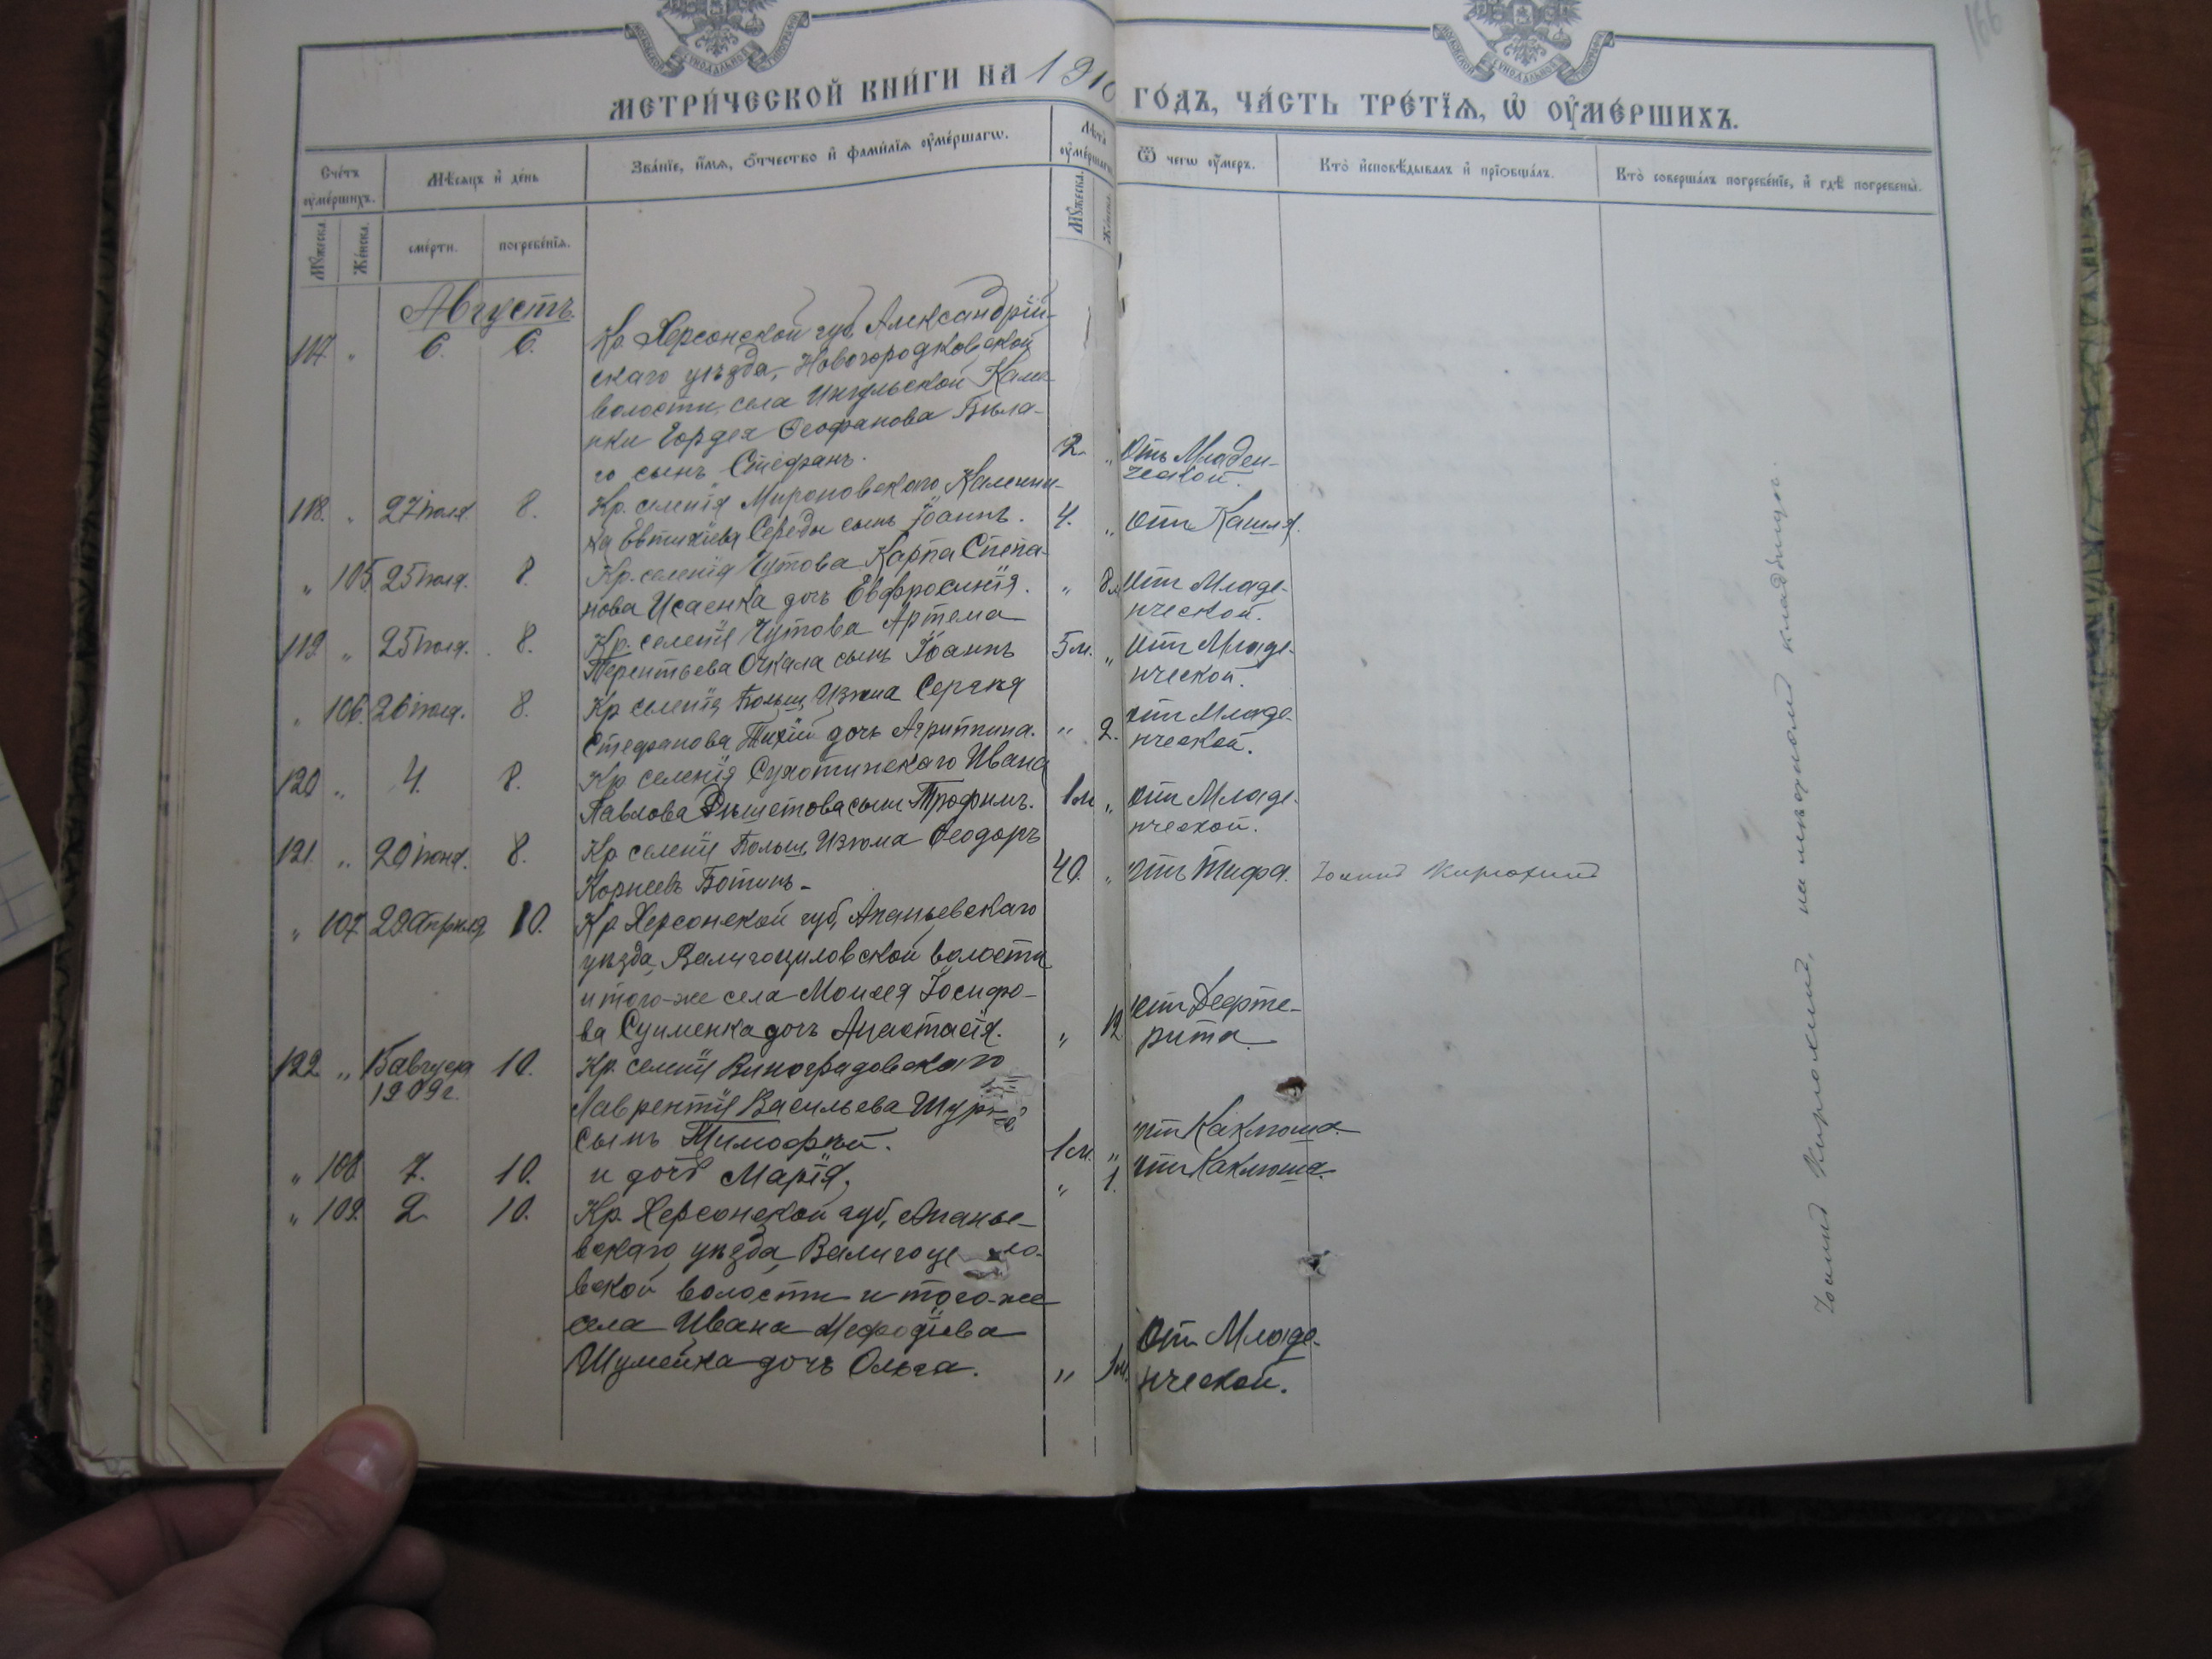 166
МЕТРИ́ЧЕСКОЙ КНИ́ГИ НА 1910 ГО́ДЪ, ЧА́СТЬ ТРЕ́ТЇѦ, Ѡ҆ ОУ҆МЕ́РШИХЪ.
Сче́тъ оу҆ме́ршихъ.
Мѣ́сѧцъ и҆ де́нь
Зва́нїе, и҆́мѧ, ѻ҆́тчество и҆ фами́лїѧ оу҆ме́ршагѡ.
Лѣ́та оу҆ме́ршагѡ
Ѿ чегѡ̀ оу҆́меръ.
Кто̀ и҆сповѣ́дывалъ и҆ прїѻбща́лъ.
Кто̀ соверша́лъ погребе́нїе, и҆ гдѣ̀ погребены̀.
Мꙋ́жеска.
Же́нска.
сме́рти.
погребе́нїѧ.
Мꙋ́жеска.
Же́нска.
Августъ
117 " 6. 6. Кр. Херсонской губ, Александрій-
скаго уѣзда, Новогородковской
волости, села Ингульской Каме-
нки Гордея Ѳеофанова Бѣла-
го сынъ Стефанъ. 2 " Отъ Младен-
ческой.
118. " 27 іюля 8. Кр. селенія Мироновскаго
на Евтихіева Середы сынъ Іоаннъ. 4. " отъ Кашля.
" 105. 25 іюля. 8. Кр. селенія Чутова Карпа Степа-
нова Исаенка дочь Евфросинія. " 8м отъ Младе-
нческой.
119 " 25 іюля. 8. Кр. селенія Чутова Артема
Терентьева Очкала сынъ Іоаннъ 5м. " отъ Младе-
нческой.
" 106. 26 іюля. 8. Кр селенія Больш, Изюма Сергея
Стефанова Тихій дочь Агриппина. " 2. отъ Младе-
нческой.
120 " 4. 8. Кр. селенія Сухотинскаго Ивана
Павлова сынъ Трофимъ. 1м " отъ Младе-
нческой.
121. " 20 іюня. 8. Кр селенія Больш, Изюма Ѳеодоръ
Корнеевъ Ботинъ - 40. " отъ Тифа. Іоаннъ Кирюхинъ
" 107. 29 Апрѣля 10. Кр Херсонской губ, Ананьевскаго
уѣзда, Валигоциловской волости
и того-же села Моисея Іосифо-
ва дочь Анастасія. " 12 отъ Дефте-
рита.
122 " 15 августа 10. Кр. селенія Виноградовскаго
1909 г.
Лаврентія Васильева
сынъ Тимофѣй. 1м. " отъ Каклюша.
" 108 7. 10. и дочь Марія, " 1. отъ Каклюша.
" 109. 2 10. Кр. Херсонской губ, Ананье-
вскаго уѣзда, Валигоце ло-
вской волости и того-же
села Ивана Мефодіева
Шумейка дочь Ольга. " 1м. Отъ Младе-
нческой.
Іоаннъ Кирюхинъ, на мѣстномъ кладбищѣ.